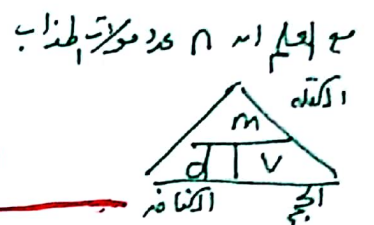 مع العلم ان n عدد مولات المذاب
الكتلة
m
d v
الكثافة الحجم